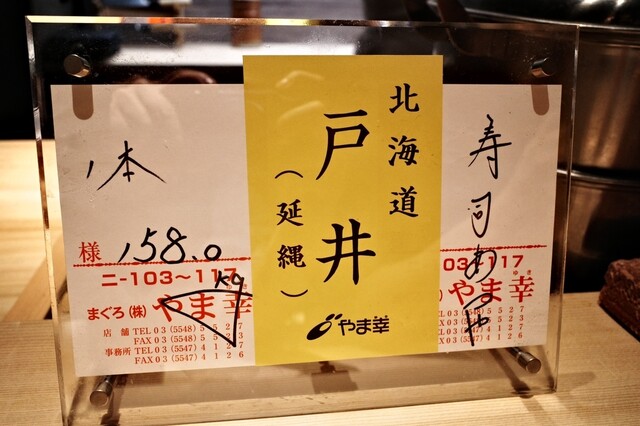 寿司あや
北海道
戸井
(延縄)
やま幸
1本
様 158.0kg
ニ-103~117
まぐろ(株)やま幸
店舗 TEL 03(5548)5527
FAX 03(5548)5523
事務所 TEL 03(5547)4127
FAX 03(5547)4126
03~117
やま幸
ゆき
03(5548)5527
03(5548)5523
03(5547)4127
FAX 03(5547)4126